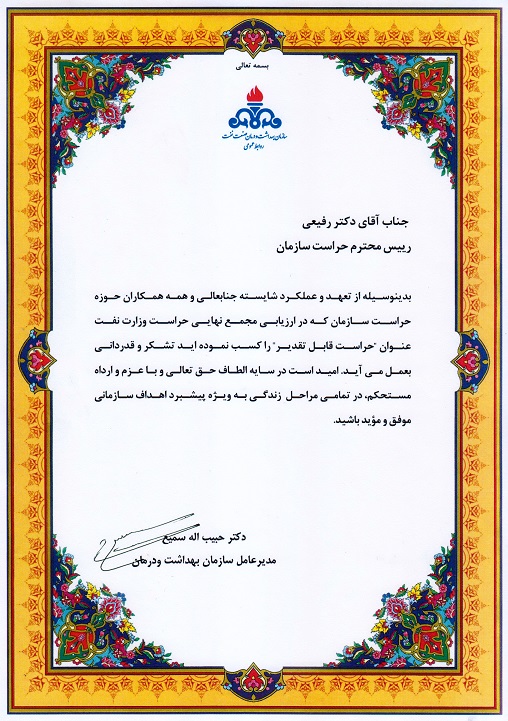 بسمه تعالی
سازمان بهداشت و درمان صنعت نفت
روابط عمومی
جناب آقای دکتر رفیعی
رییس محترم حراست سازمان
بدینوسیله از تعهد و عملکرد شایسته جنابعالی و همه همکاران حوزه
حراست سازمان که در ارزیابی مجمع نهایی حراست وزارت نفت
عنوان "حراست قابل تقدیر" را کسب نموده اید تشکر و قدردانی
بعمل می آید. امید است در سایه الطاف حق تعالی و با عزم و ارداه
مستحکم، در تمامی مراحل زندگی به ویژه پیشبرد اهداف سازمانی
موفق و مؤید باشید.
دکتر حبیب اله سمیع
مدیرعامل سازمان بهداشت ودرمان